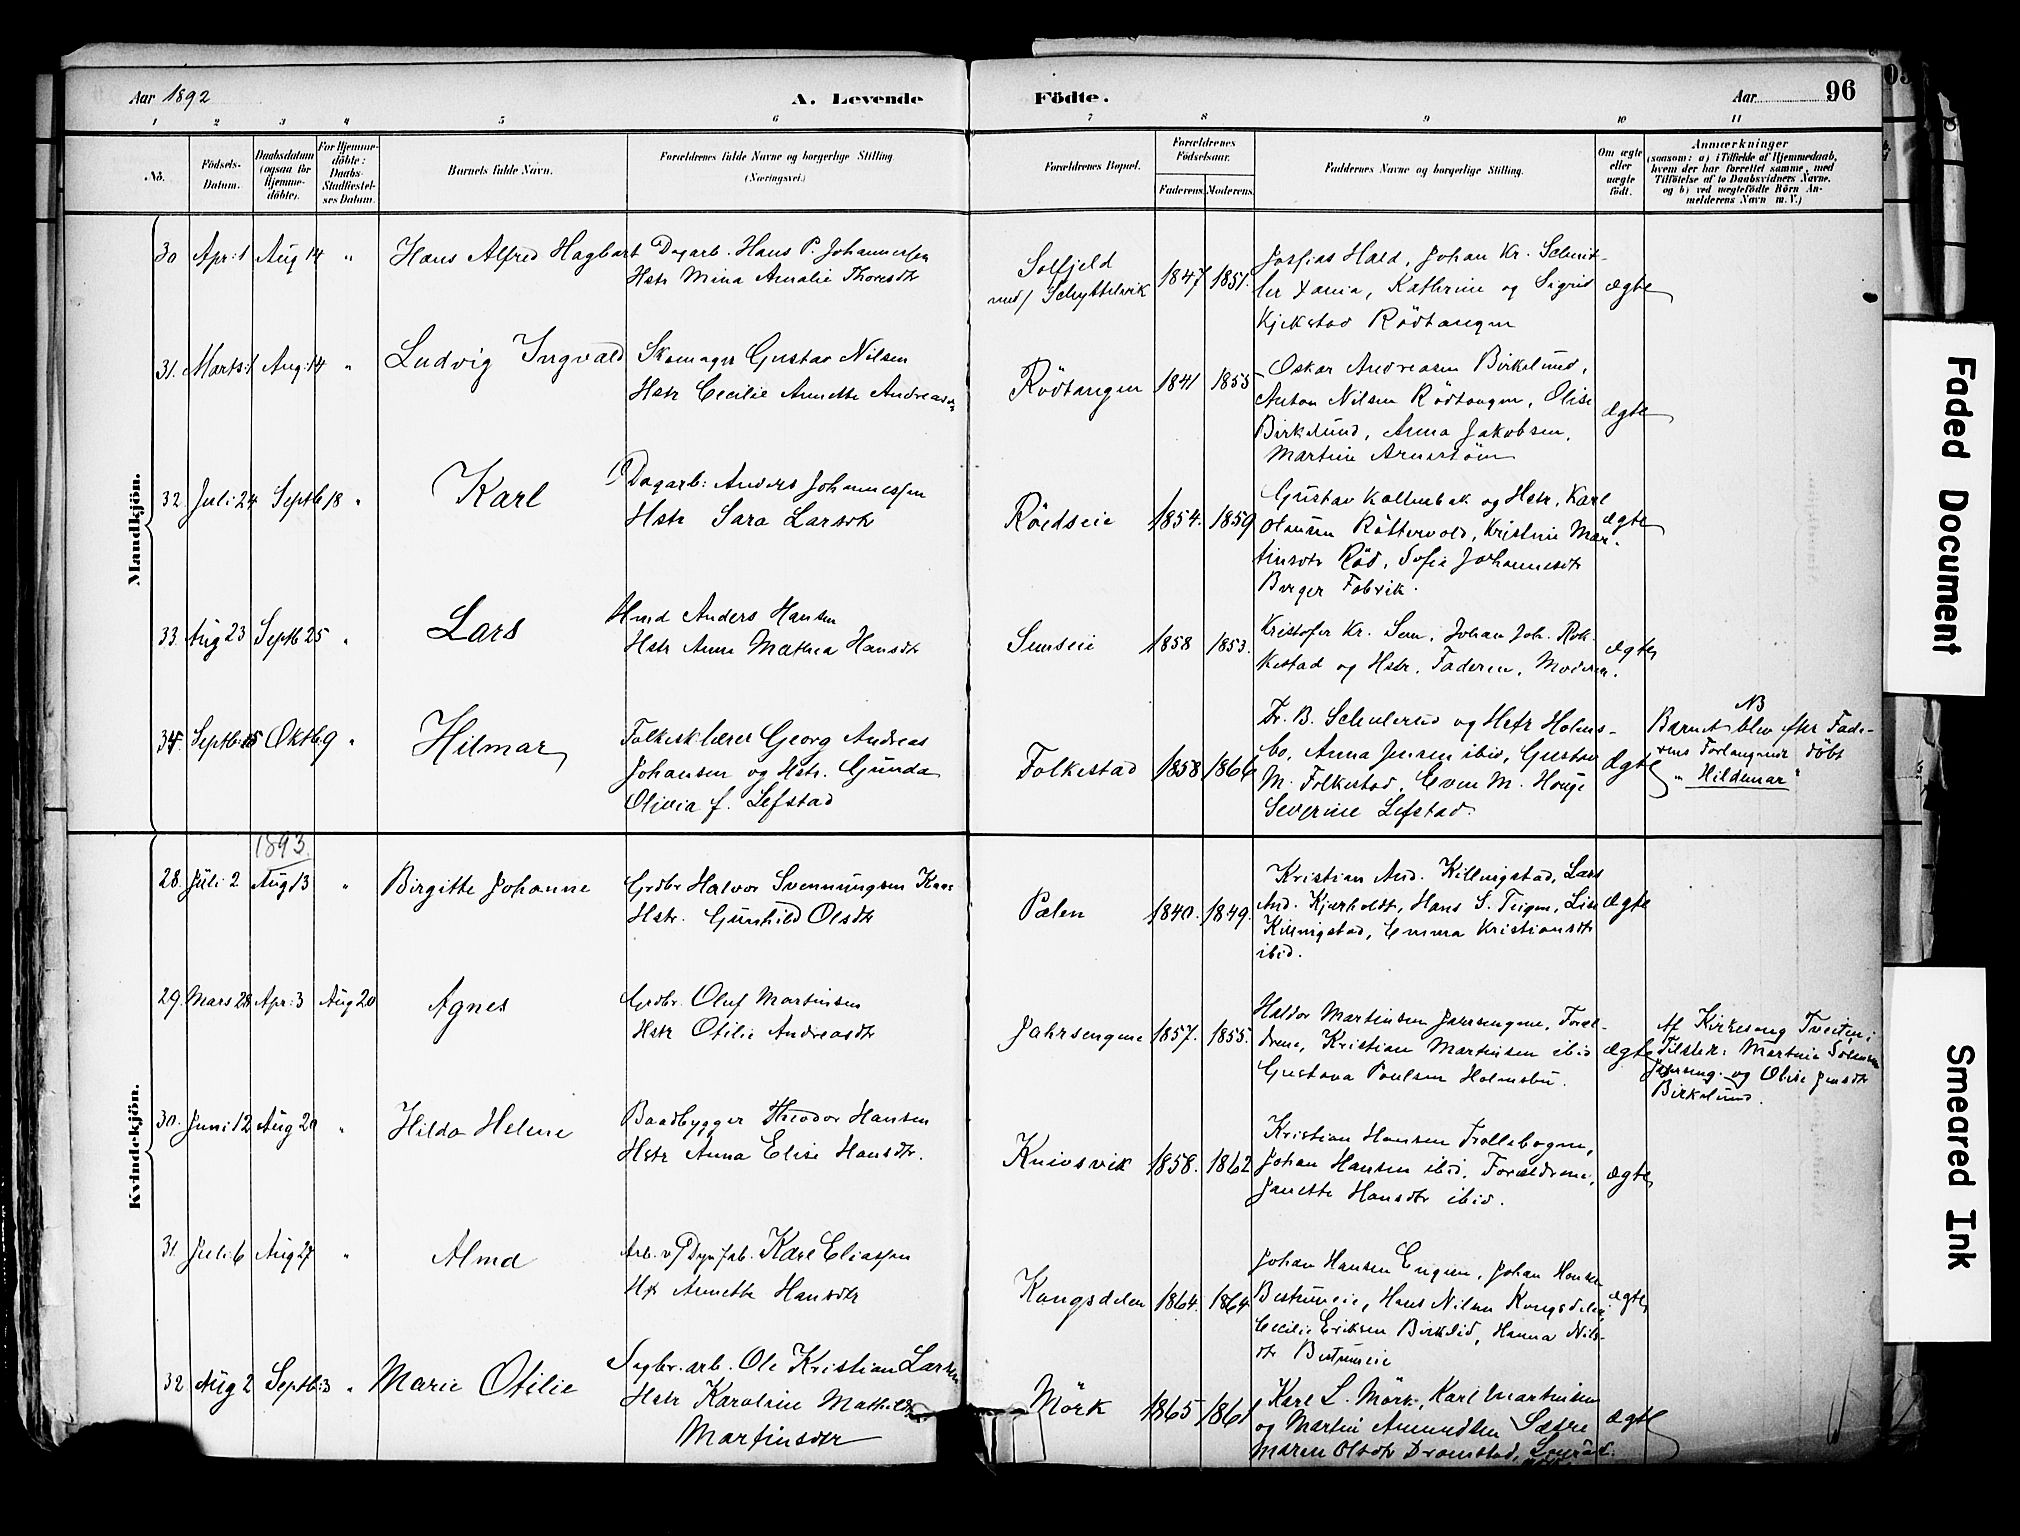 Aar 1892
A. Levende
Födte.
Aar
96
1 2 3 4 5 6 7 8 9 10 11
No.
Födsels-
Datum.
Daabsdatum
(ogsaa for
Hjemme-
döbte).
For Hjemme-
döbte:
Daabs-
Stadfæstel-
ses Datum.
Barnets fulde Navn.
Forældrenes fulde Navne og borgerlige Stilling
(Næringsvei.)
Forældrenes Bopæl.
Forældrenes
Födselsaar.
Faderens. Moderens.
Faddernes Navne og borgerlige Stilling.
Om ægte
eller
uægte
født.
Anmærkninger
(saasom: a) i Tilfælde af Hjemmedaab,
hvem der har forrettet samme, med
Tilföielse af to Daabsvidners Navne,
og b) ved uægtefödte Börn An-
melderens Navn m. V.)
Mandkjön.
30 Apr: 1 Aug 14 " Hans Alfred Hagbart
Dagarb. Hans P. Johannessen
Hstr Mina Amalie Thoresdtr
Solfjeld
1847 1851.
Hald, Johan Kr.
Kathrine og Sigrid
Kjekstad Rödtangen
ægte
31. Marts: 1 Aug: 14 " Ludvig Ingvald
Skomager Gustav Nilsen
Hstr Cecilie Annette
Rödtangen 1841 1855
Oskar Andreasen Birkelund,
Anton Nilsen Rödtangen, Olise
Birkelund, Anna Jakobsen,
Martine
ægte
32. Juli: 24 Septb 18 " Karl
Dagarb: Anders Johannessen
Hstr Sara Larsdtr
Röedseie 1854. 1859
Gustav og Hstr, Karl
Kristine Mar-
tinsdtr Röd, Sofie Johannesdtr
Berger Fabrik.
ægte
33. Aug 23 Septb 25 " Lars
Anders Hansen
Hstr Anne Mathea Hansdtr
Semseie 1858 1853.
Kristofer Kr. Sem, Johan Joh. Rok-
kestad og Hstr. Faderen, Moderen.
ægte
34. Septb: 15 Oktb 9 " Hilmar
Folkesk.lærer Georg Andreas
Johansen og Hstr. Gunda
Olivia f. Lefstad
Folkestad 1858 1866
Fr. B. Schulerud og Hstr Holms-
bo, Anna Jensen ibid, Gustav
M. Folkestad, Even M. Houge
Severine Lefstad.
ægte
NB
Barnet blev efter Fade-
rens Forlangende döbt
"Hildemar"
Kvindekjön.
1893.
28. Juli: 2 Aug 13 " Birgitte Johanne
Grdbr Halvor Svennungsen
Hstr. Gunhild Olsdtr
Pælen 1840. 1849.
Kristian And. Killingstad, Lars
And. Kjærholdt, Hans S. Teigen, Lise
Killingstad, Emma Kristiansdtr
ibid.
ægte
29. Mars 28 Apr: 3 Aug 20 Agnes
Grdbr. Oluf Martinsen
Hstr Otilie Andreasdtr
Jahrsengene 1857. 1855.
Haldor Martinsen Jarsengene, Foræl-
drene, Kristian Martinsen ibid
Gustava Poulsen Holmsbu.
ægte
Af Kirkesang Tveiten;
Tilsted: Martnia
Jarseng. og Olise Jensdtr
Birkelund.
30. Juni 12 Aug 20 " Hilda Helene
Baadbygger Theodor Hansen
Hstr Anna Elise Hansdtr.
Knivsvik 1858. 1862
Kristian Hansen Trollebogne,
Johan Hansen ibid. Forældrene,
Janette Hansdtr ibid.
ægte
31. Juli: 6 Aug 27 " Alma
Arb. v/ Dyn.fab. Karl Eliassen
Annette Hansdtr
Kongsdelen 1864. 1864
Johan Hansen Engen, Johan Hansen
Hans Nilsen Kongsdelen,
Cecilie Eriksen Birkelid, Hanna Nils-
dtr
ægte
32 Aug 2 Septb: 3 " Marie Otilie
arb. Ole Kristian Larsen
Hstr Karoline Mathilde
Martinsdtr
Mörk 1865 1861
Karl L. Mörk, Karl Martinsen
og Martin Amundsen Sætre
Maren Olsdtr Dramstad,
ægte
Faded Document
Smeared Ink